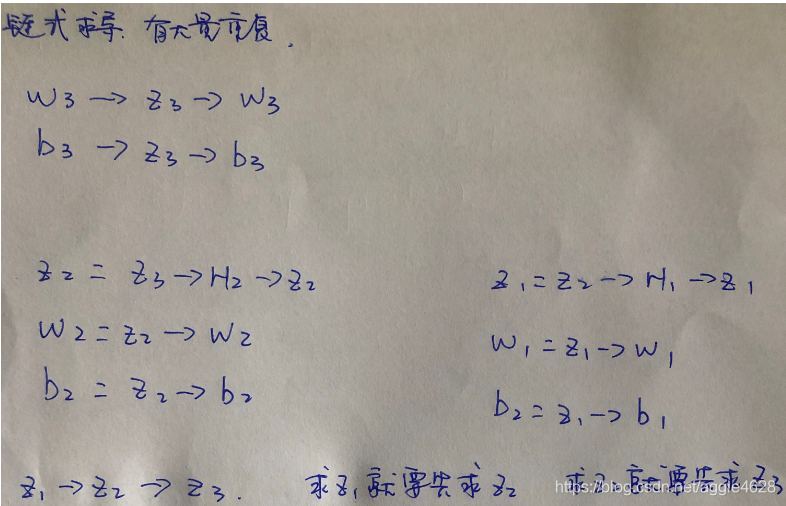 链式求导. 有大量重复.
w3 → z3 → w3
b3 → z3 → b3
z2 = z3 → H2 → z2
w2 = z2 → w2
b2 = z2 → b2
z1 = z2 → H1 → z1
w1 = z1 → w1
b2 = z1 → b1
z1 → z2 → z3. 求z1就要先求z2 求z2就要先求z3
https://blog.csdn.net/aggie4628